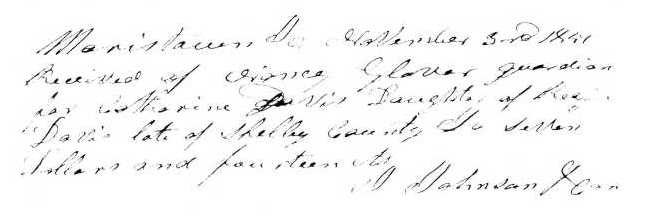 Moristown November 3rd 1841
Received of Glover guardian
for Catharine Davis Daughter of
Davis late of Shelby County seven
Dollars and fourteen cts
Johnson